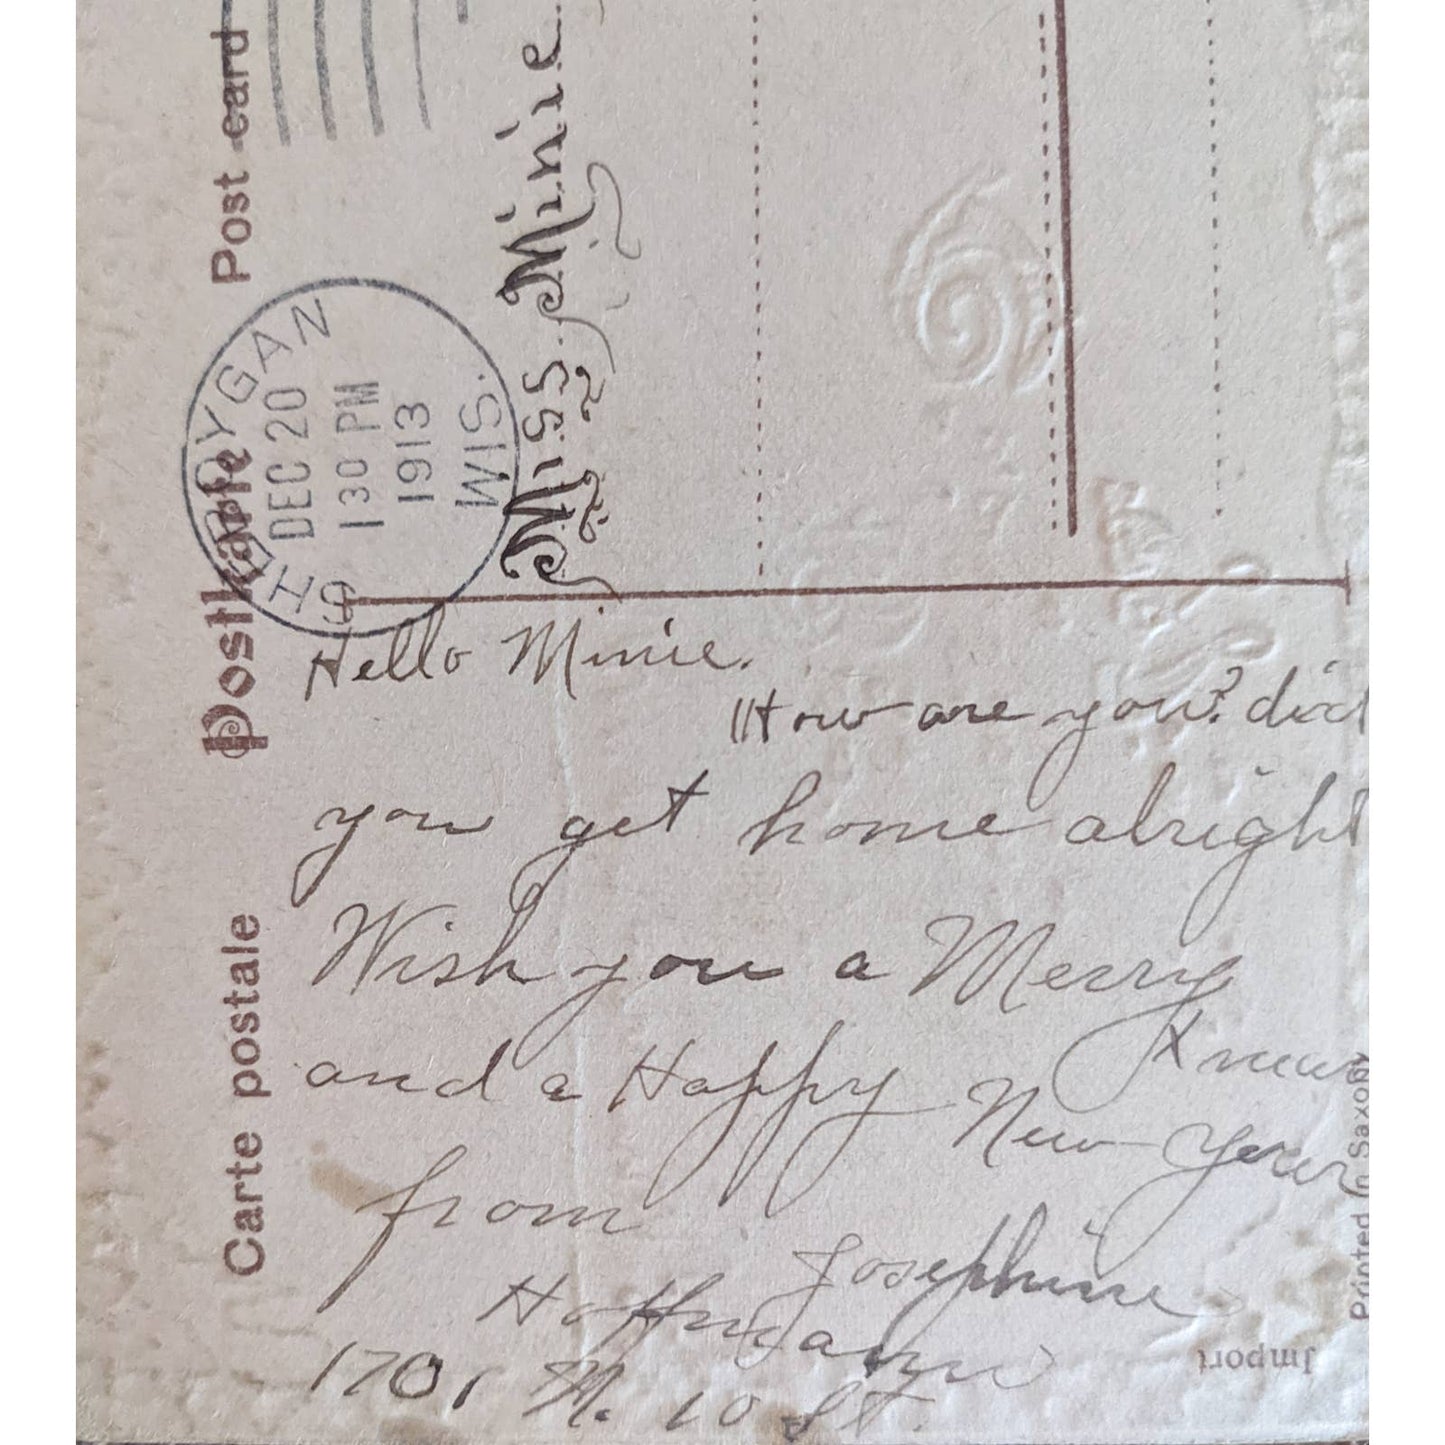 Post card
Postkarte
Carte postale
SHEBOYGAN
DEC 20
1 30 PM
1913
WIS.
Miss. Minie
Hello Minie.
How are you? did
you get home alright
Wish you a Merry
Xmas
and a Happy New Year
from
Josephine
Hoffmann
1701 N. 10 St.
Import
Printed in Saxony